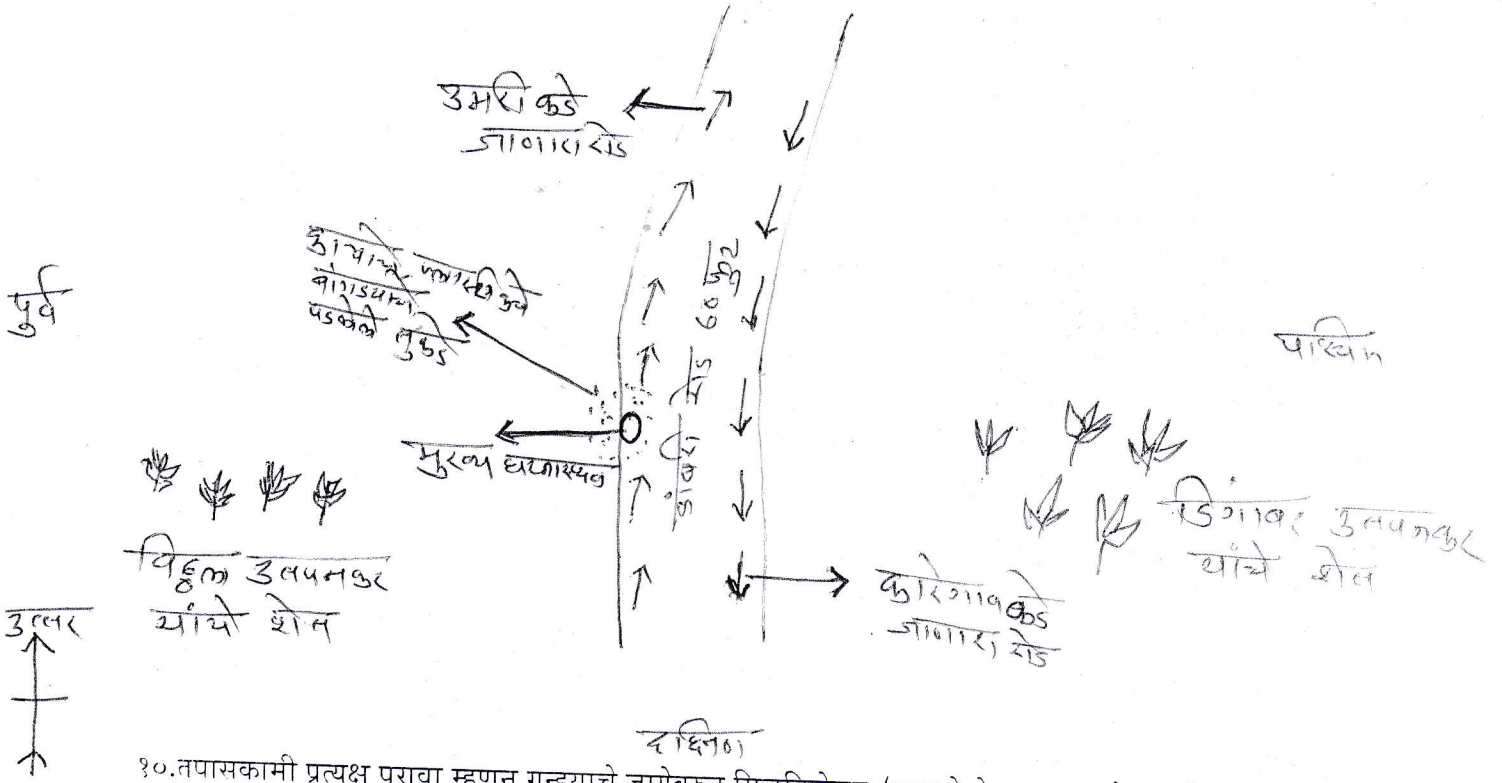 उमरी कडे
जाणारा रोड
पुर्व
बांगडयाचे
पडलेले तुकडे
डांबरी रोड 60 फुट
पश्चिम
मुख्य घटनास्थळ
विठ्ठल उतपनकर
यांचे शेत
डिगांबर उतपनकर
यांचे शेत
कारेगाव कडे
जाणारा रोड
उत्तर
दक्षिण
१०.तपासकामी प्रत्यक्ष पुरावा म्हणून गुन्हयाचे जागेवरून